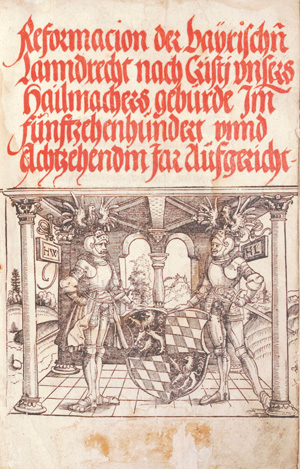 Reformacion der bayrischn
Lanndrecht nach Cristi vnsers
Hailmachers gebürde Im
fünftzehenhundert vnnd
Achtzehendm Jar Aufgericht.
H W
H L